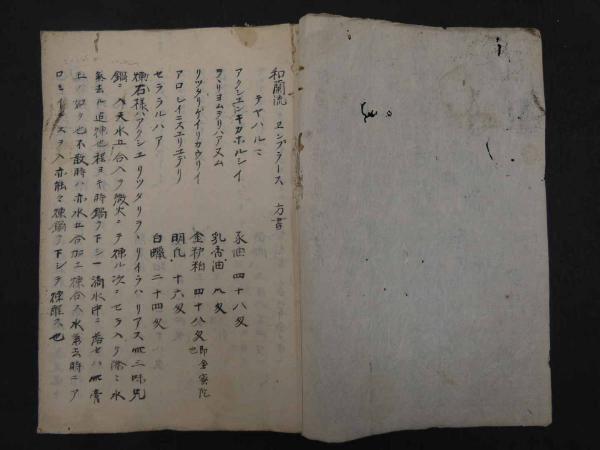 和蘭流 ヱンプラース 方書
テヤハルマ
アクシユンギカホルシイ 豕油 四十八匁
ヲヽリヨムヲリハアヌム 乳香油 八匁
リツタリゲイリカウリイ 金炉粕 四十八匁 即金蜜陀也
アロレイニスユリエデリ 明凡 十六匁
セラアルハア 白蠟 二十四匁
煉右様ハアクシユンリツタリヲヽリイラハリアス此三味先
鍋ニ入天水五合入テ微火ニテ煉ル次ニセラ入リ際ニ水
気去ル迠煉也程ヨキ時鍋ヲ下シ一滴水中ニ落セハ此膏
玉ノ如ク也不散時ハ亦水五合加工煉合天水気去時ニア
ロヱイニスヲ入亦能々煉鍋ヲ下シテ煉醒ス也